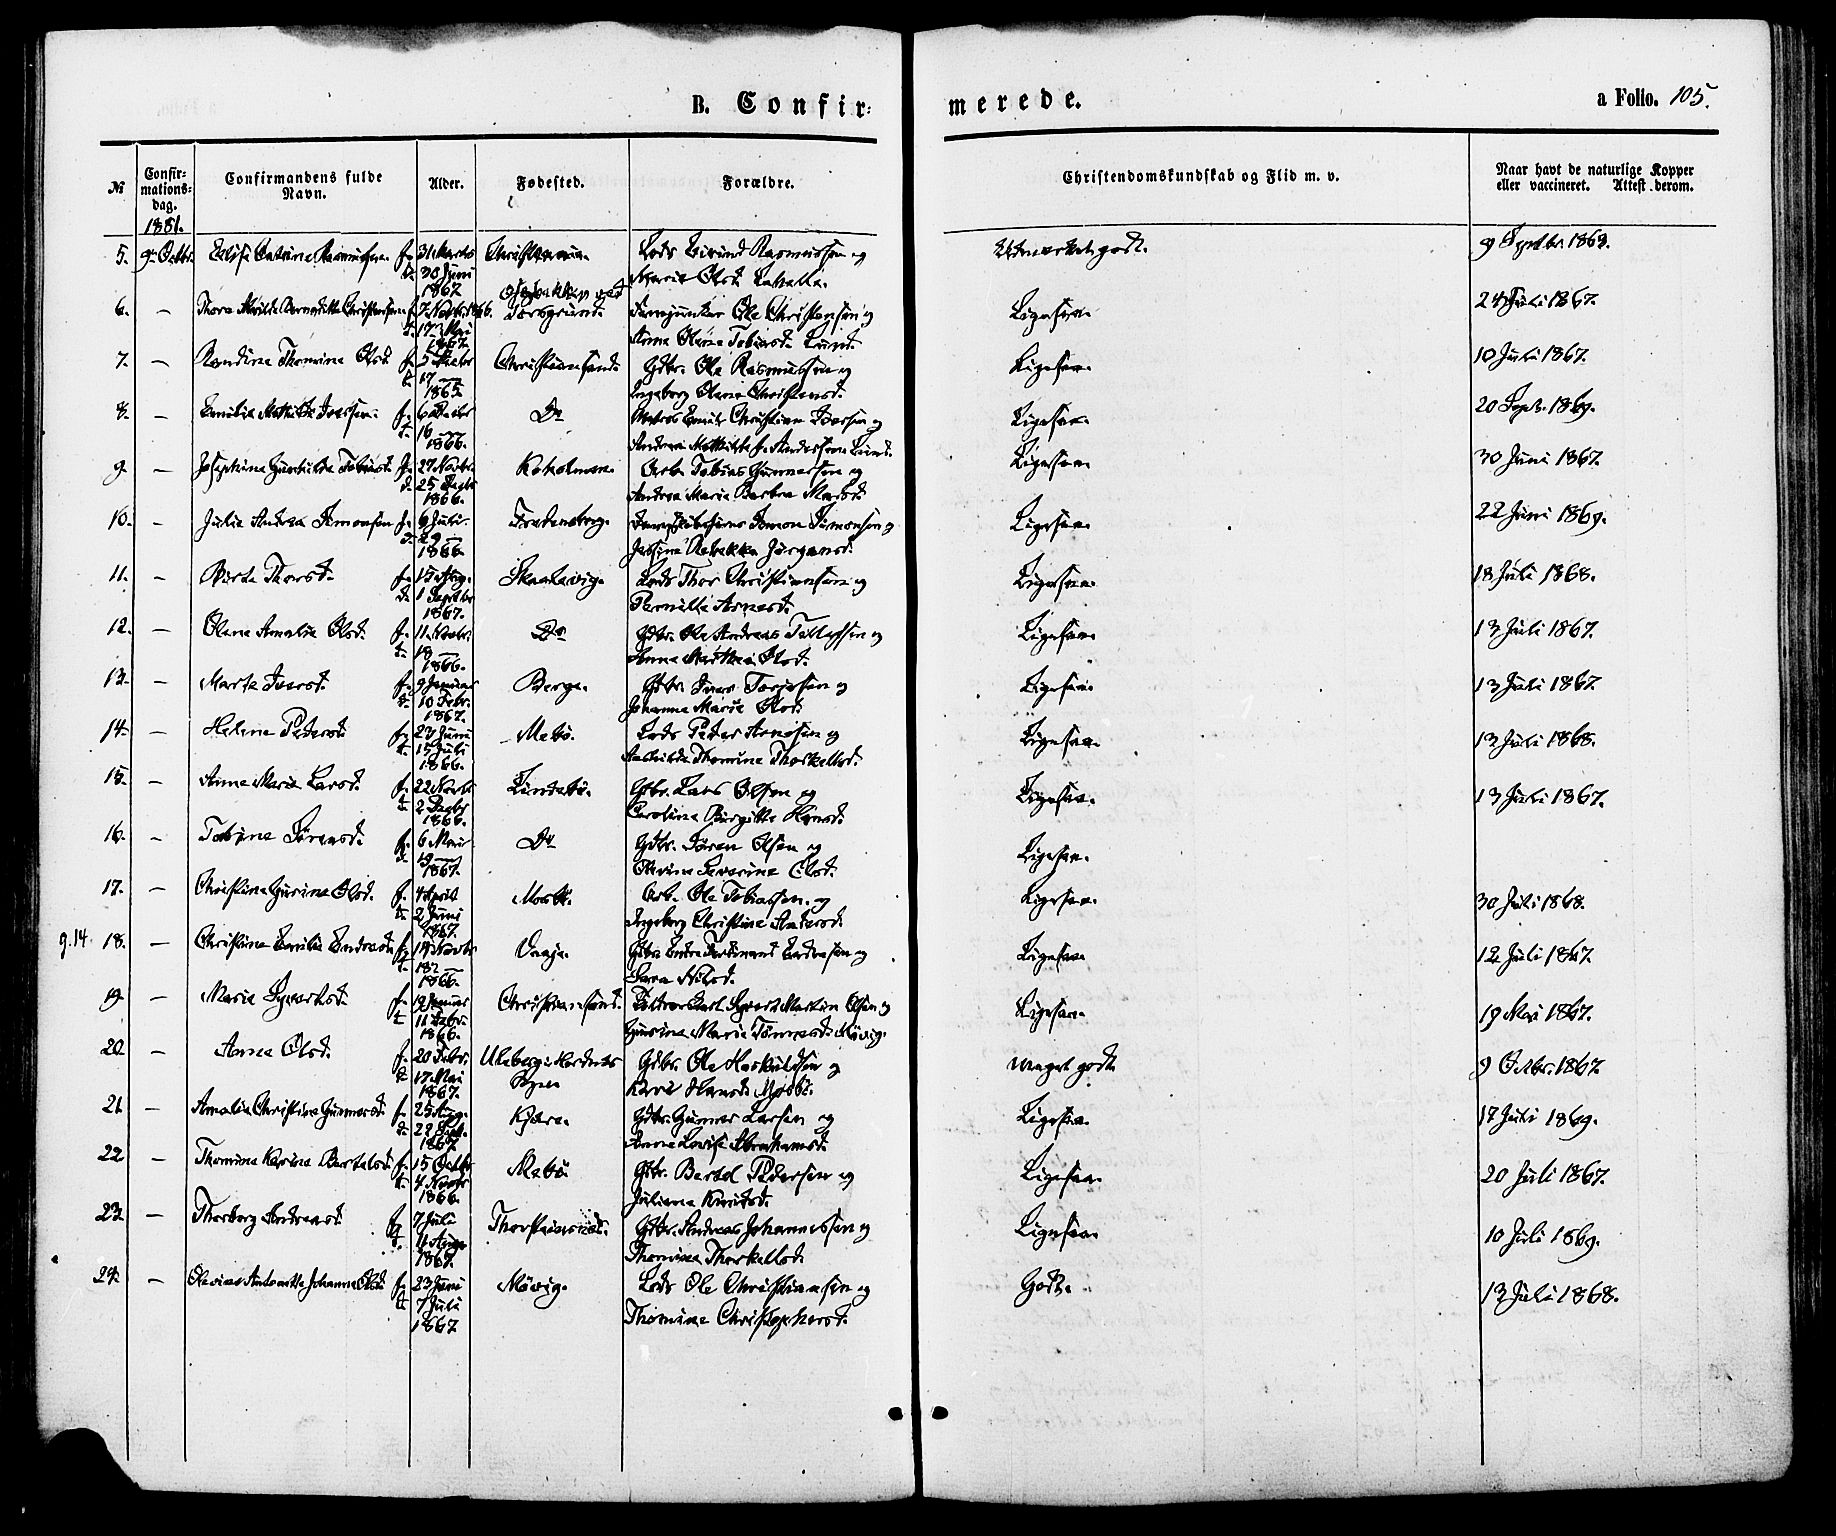 B. Confir: merede. a Folio. 105.
№ Confir-mations-dag. Confirmandens fulde Navn. Alder. Fødested. Forældre. Christendomskundskab og Flid m. v. Naar havt de naturlige Kopper eller vaccineret. Attest derom.
1881.
5. 9 Octbr. Rasmussen f. 31 Marts Lods Eivind Rasmussen og godt. 9 Septbr. 1869.
d. 30 Juni Marie Olsd.
1867
6. — Thora Bernditte Christensen f. 7 Novbr 1866. Porsgrund. Ole Christensen og Ligesaa. 24 Juli 1867.
d. 17 Mai Anna Oline Tobiasd. Lund.
1867.
7. — Randine Thomine Olsd. f. 5 Christianssand. Gdbr. Ole Rasmussen og Ligesaa. 10 Juli 1867.
d. 17 — Ingeborg Oline Christensd.
1865.
8. — Emilie Mathilde Iversen. f. 6 Decbr Do Emil Christian Iversen og Ligesaa. 20 Sept. 1869.
d. 16 — Andrea Mathilde f. Andersen Lund.
1866.
9. — Josephine Gunhilde Tobiasd. f. 27 Novbr. Kokolmen. Arb. Tobias Gunnarsen og Ligesaa. 30 Juni 1867.
d. 25 Decbr Andrea Marie Barbra Madsd.
1866.
10. — Julie Andrea Simonsen f. 6 Juli. Fredensborg. Simon Simonsen og Ligesaa. 22 Juni 1869.
d. 29 — Jossine Rebekka Jørgensd.
1866.
11. — Berte Thorsd. f. 15 Aug. Skaalevig. Lods Thor Christiansen og Ligesaa. 18 Juli 1868.
d. 1 Septbr Pernille Arnesd.
1867.
12. — Olene Amalie Olsd. f. 11 Novbr. Do Gdbr. Ole Andreas Tellefsen og Ligesaa. 13 Juli 1867.
d. 18 — Anne Olsd.
1866.
13. — Marte Iversd. f. 9 Januar Berge. Gdbr. Iver Torjesen og Ligesaa. 13 Juli 1867.
d. 10 Febr. Johanne Marie Olsd.
1867.
14. — Helene Pedersd. f. 23 Juni Mebø. Lods Peder Arnesen og Ligesaa. 13 Juli 1868.
d. 15 Juli Thomine Thorkellsd.
1866.
15. — Anne Marie Larsd. f. 22 Novbr Lindebø. Gdbr. Lars Olsen og Ligesaa. 13 Juli 1867.
d. 2 Decbr Caroline Birgitte Hansd.
1866.
16. — Tobine Sørensd. f. 6 Mai Do Gdbr. Søren Olsen og Ligesaa.
d. 19 — Severine Olsd.
1867.
17. — Christine Gurine Olsd. f. 4 April Mosbø. Arb. Ole Tobiassen og Ligesaa. 30 Juli 1868.
d. 2 Juni Ingeborg Christine Andersd.
1867.
9.14. 18. — Christine Emilie Endresd. f. 14 Novbr Vaaje. Gdbr. Endre Ferdinand Endresen og Ligesaa. 12 Juli 1867.
d. 18 — Sara Nilsd.
1866.
19. — Marie Syvertsd. f. 12 Januar Christianssand. Syvert Martin Olsen og Ligesaa. 19 Mai 1867.
d. 11 Febr. Gurine Marie Tønnesd. Møvig.
1866.
20. — Anne Olsd. f. 20 Febr. Uleberg i Hordnæs Gdbr. Ole Haskuldsen og Meget godt. 9 Octbr. 1867.
d. 17 Mai Sogn Hansd. Mosbø.
1867.
21. — Amalie Christine Gunnarsd. f. 25 Aug. Kjære. Gdbr. Gunnar Larsen og Ligesaa. 17 Juli 1869.
d. 22 Sept. Anne Lovise Abrahamsd.
1867.
22. — Thomine Karine Bertelsd. f. 15 Octbr Mebø. Gdbr. Bertel Pedersen og Ligesaa. 20 Juli 1867.
d. 4 Novbr Juliane Knudsd.
1866.
23. — Thorborg Andreasd. f. 7 Juli Thorsteinsnes. Gdbr. Andreas Johannessen og Ligesaa. 10 Juli 1869.
d. 11 Aug. Thomine Thorkellsd.
1867.
24. — Olevine Antonette Johanne Olsd. f. 23 Juni Møvig. Lods Ole Christiansen og Godt. 13 Juli 1868.
d. 7 Juli Thomine Christophersd.
1867